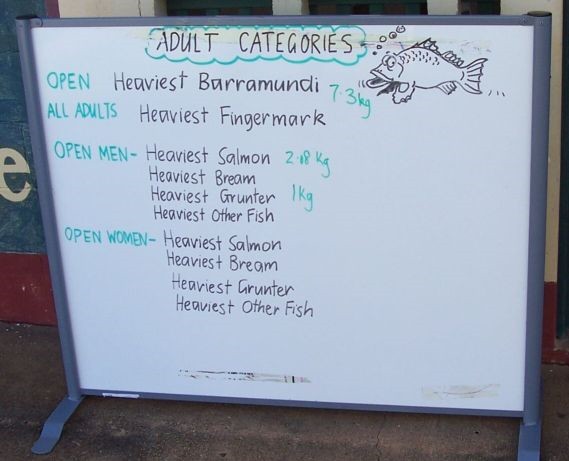 ADULT CATEGORIES
OPEN Heaviest Barramundi 7.3kg
ALL ADULTS Heaviest Fingermark
OPEN MEN- Heaviest Salmon 2.08 Kg
Heaviest Bream
Heaviest Grunter 1kg
Heaviest Other Fish
OPEN WOMEN- Heaviest Salmon
Heaviest Bream
Heaviest Grunter
Heaviest Other Fish
e